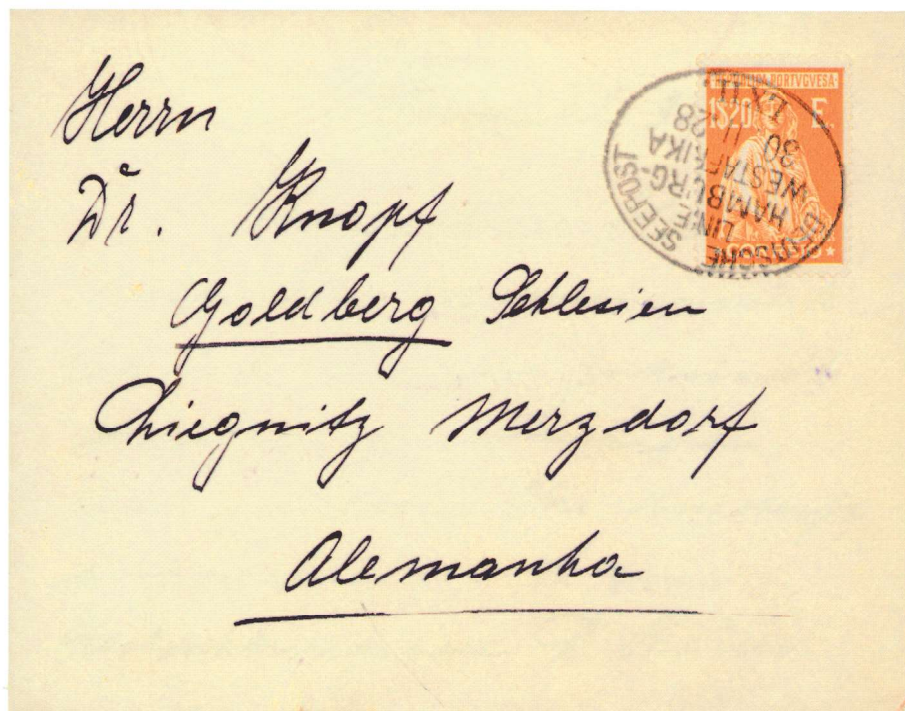 Herrn
Dr. Knopf
Goldberg Schlesien
Liegnitz Merzdorf
Alemanha
REPUBLICA PORTVGVESA
1$20 E.
DEUTSCHE SEEPOST
LINIE
HAMBURG-
WESTAFRIKA
30 11 28
LXII